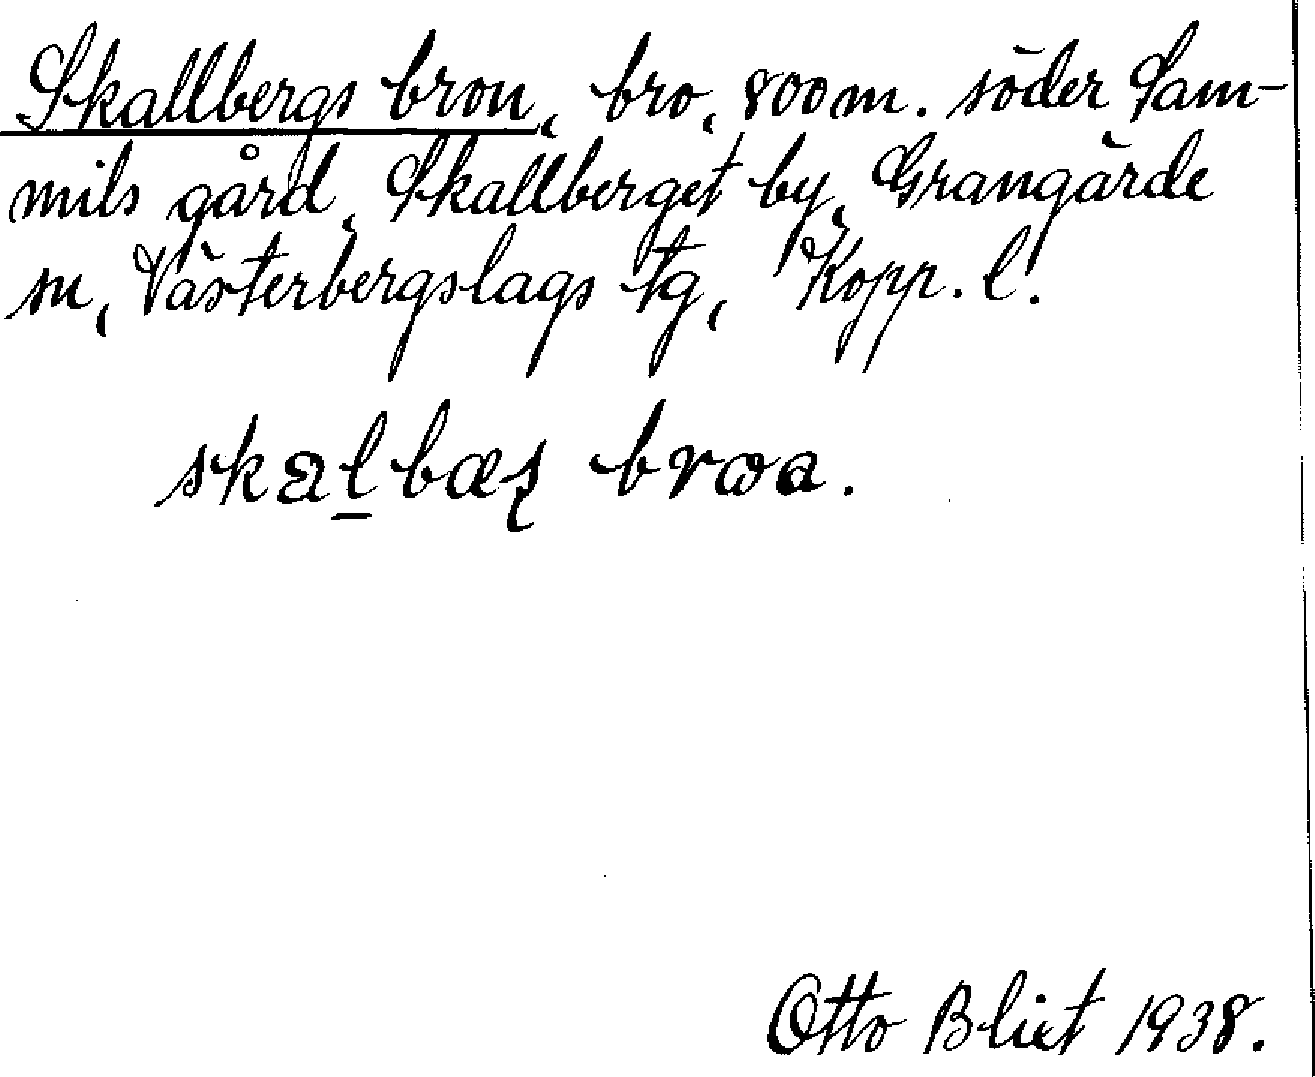 Skallbergs bron, bro, 800 m. söder Sam-
mils gård, Skallberget by, Grangärde
sn, Västerbergslags tg, Kopp. l.
skal̲bæʂ brωa.
Otto Blixt 1938.